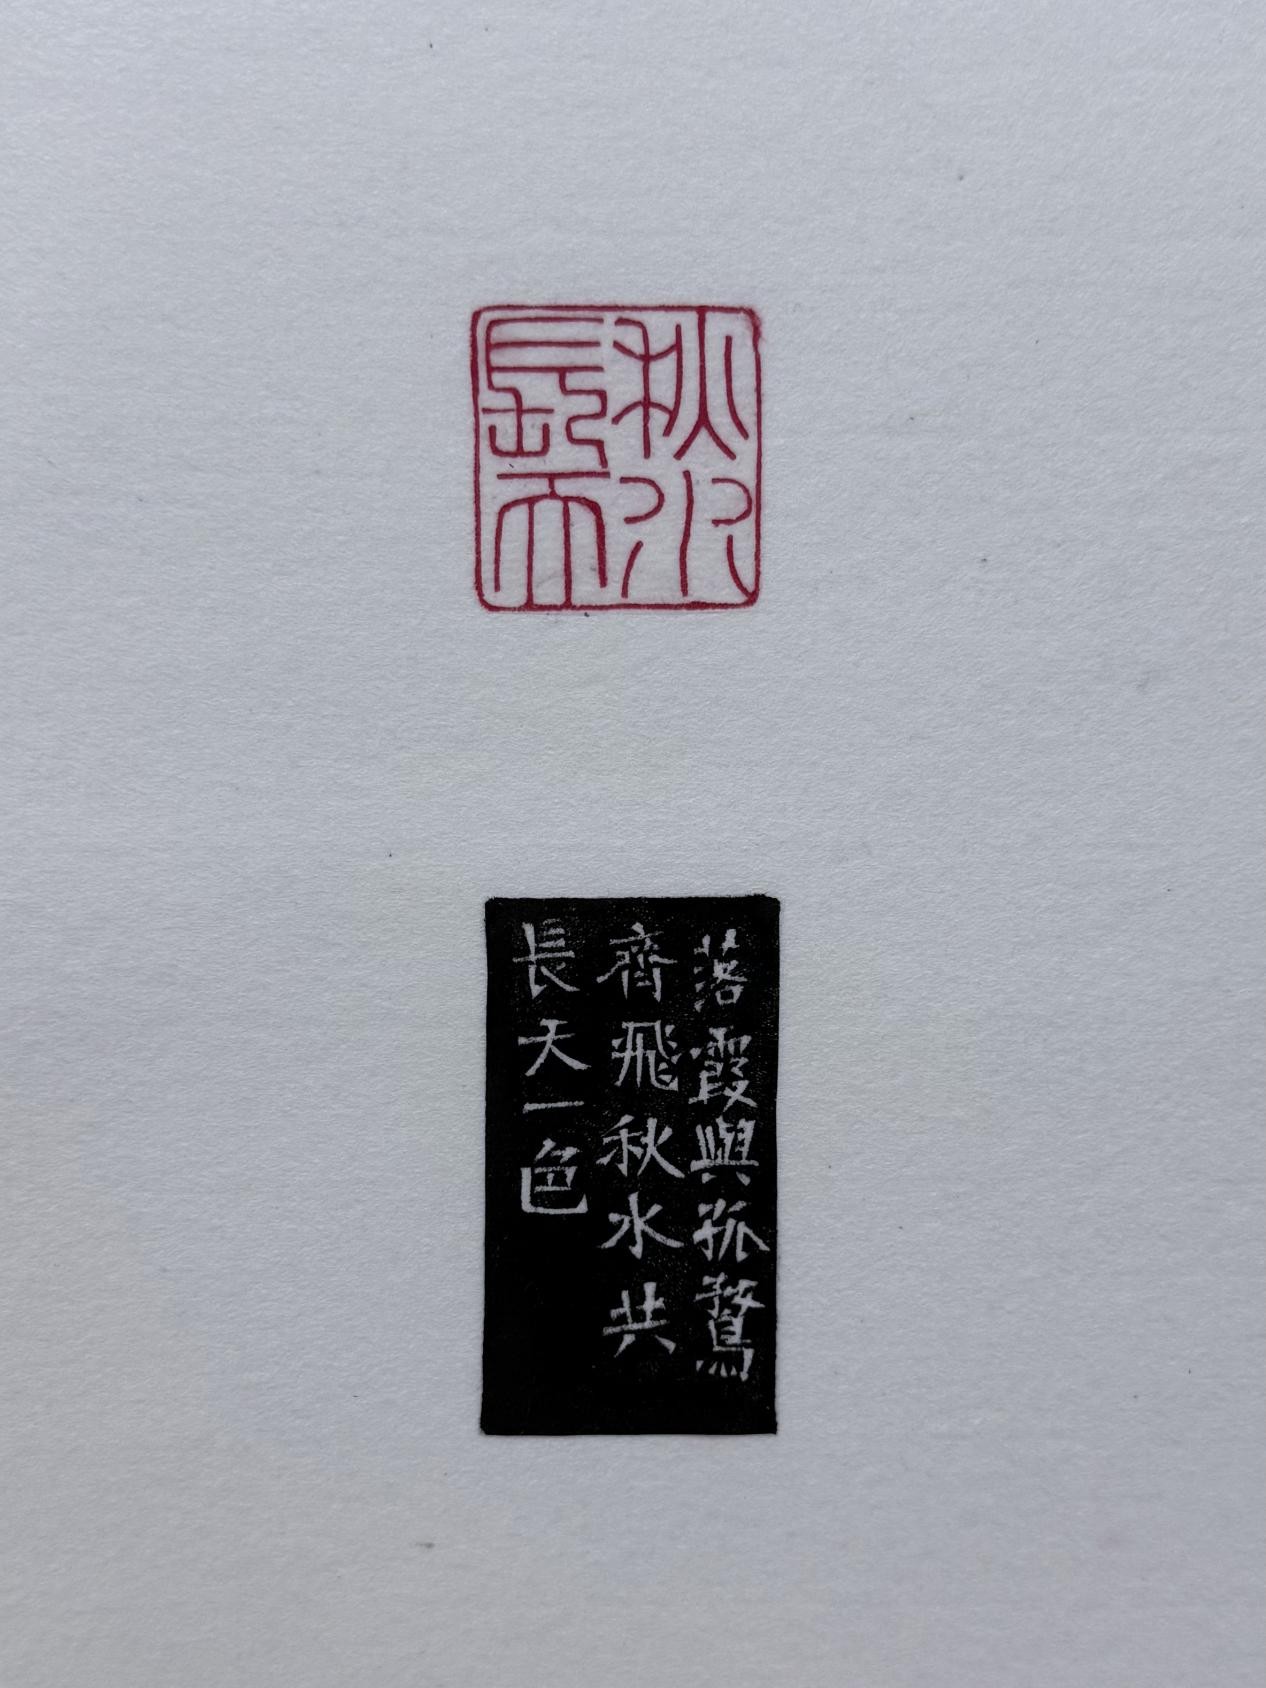 秋水
長天
落霞與孤鶩
齊飛秋水共
長天一色